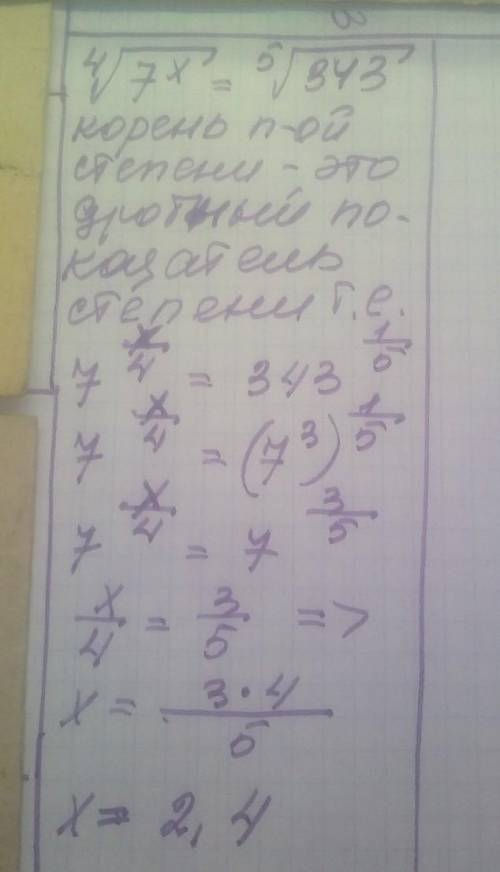 ⁴√7ˣ = ⁵√343
корень п-ой
степени - это
дробный по-
казатель
степени т.е.
7^(x/4) = 343^(1/5)
7^(x/4) = (7³)^(1/5)
7^(x/4) = 7^(3/5)
x/4 = 3/5 =>
x = 3·4/5
x = 2,4